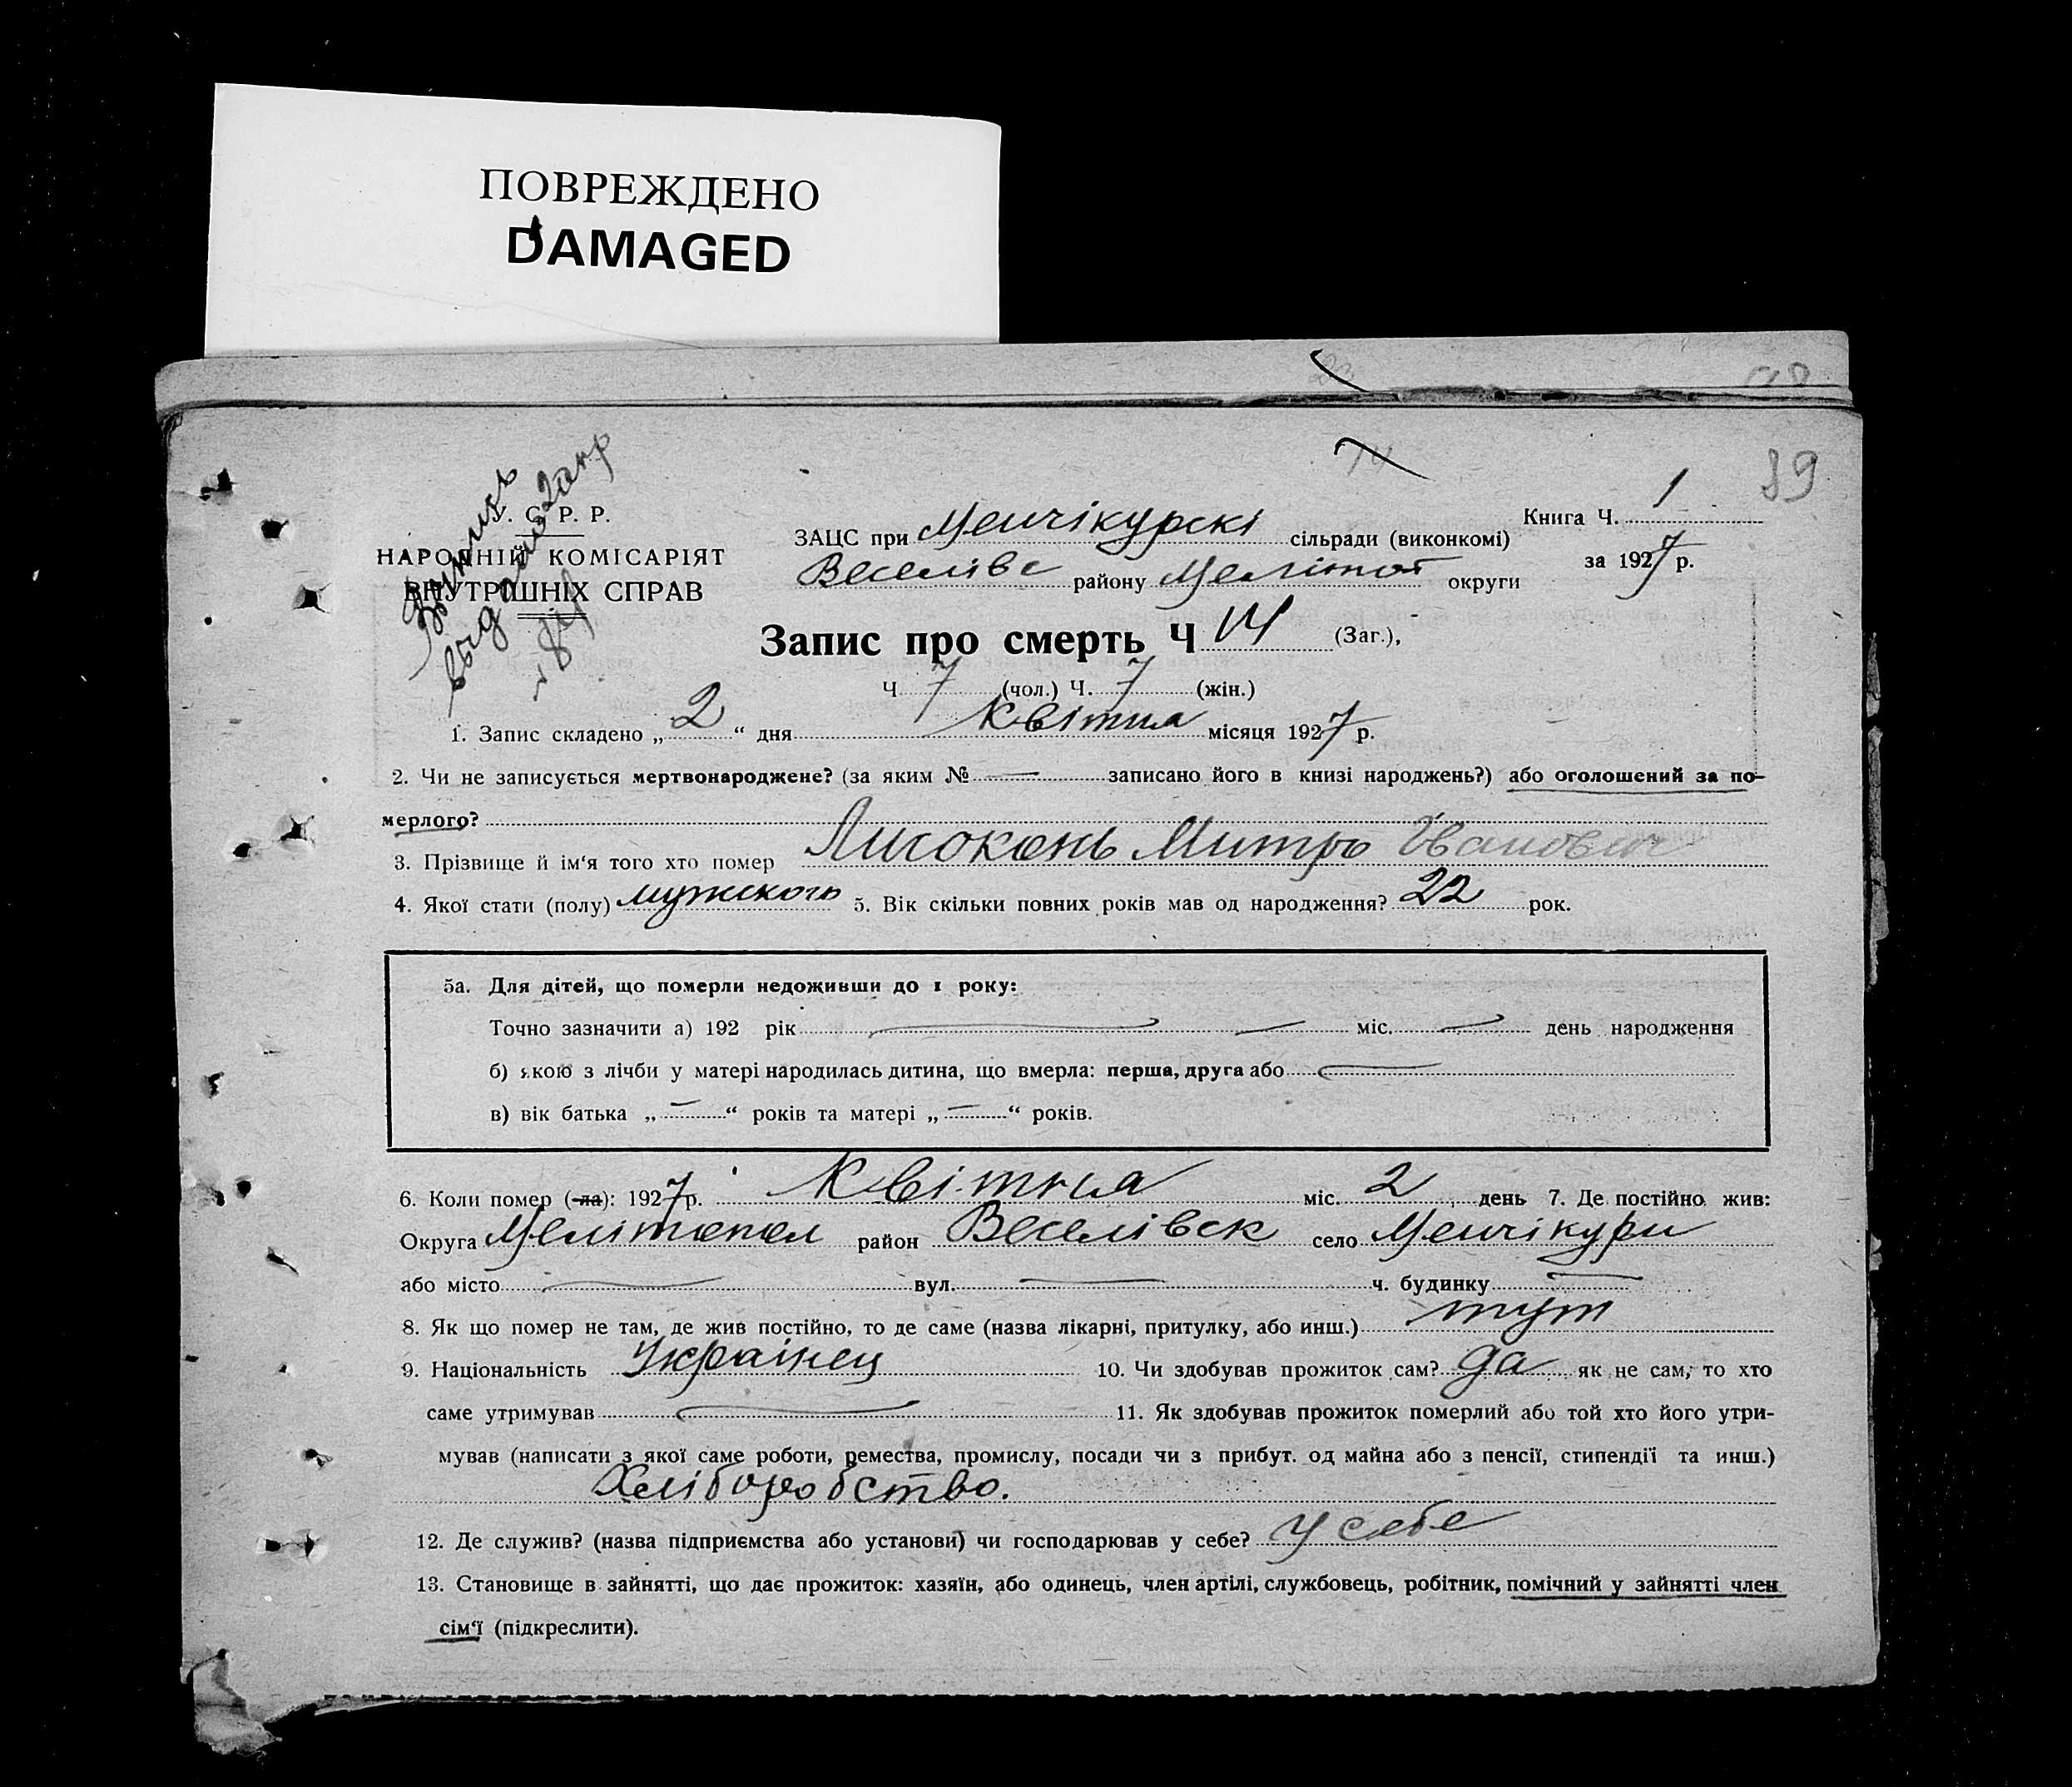 ПОВРЕЖДЕНО
DAMAGED
39
У. С. Р. Р.
НАРОДНІЙ КОМІСАРІЯТ
ВНУТРІШНІХ СПРАВ
Книга Ч. 1
за 1927 р.
ЗАЦС при Менчікурскі сільради (виконкомі)
Веселівс району Меліtот округи
Запис про смерть Ч 14 (Заг.),
Ч 7 (чол.) Ч. 7 (жін.)
1. Запис складено „ 2 “ дня Квітня місяця 1927 р.
2. Чи не записується мертвонароджене? (за яким № — записано його в книзі народжень?) або оголошений за по-
мерлого?
3. Прізвище й ім‘я того хто помер Лисоконь Митро Іванович
4. Якої стати (полу) мужского 5. Вік скільки повних років мав од народження? 22 рок.
5а. Для дітей, що померли недоживши до 1 року:
Точно зазначити а) 192 рік — — міс. — день народження
б) якою з лічби у матері народилась дитина, що вмерла: перша, друга або —
в) вік батька „ — “ років та матері „ — “ років.
6. Коли помер (-ла): 1927 р. Квітня міс. 2 день 7. Де постійно жив:
Округа Мелітопол район Веселівск село Менчікури
або місто — вул. — ч. будинку —
8. Як що помер не там, де жив постійно, то де саме (назва лікарні, притулку, або инш.) тут
9. Національність Українец 10. Чи здобував прожиток сам? да як не сам, то хто
саме утримував — 11. Як здобував прожиток померлий або той хто його утри-
мував (написати з якої саме роботи, ремества, промислу, посади чи з прибут. од майна або з пенсії, стипендії та инш.)
Хліборобство.
12. Де служив? (назва підприємства або установи) чи господарював у себе? У себе
13. Становище в зайнятті, що дає прожиток: хазяїн, або одинець, член артілі, службовець, робітник, помічний у зайнятті член
сім‘ї (підкреслити).